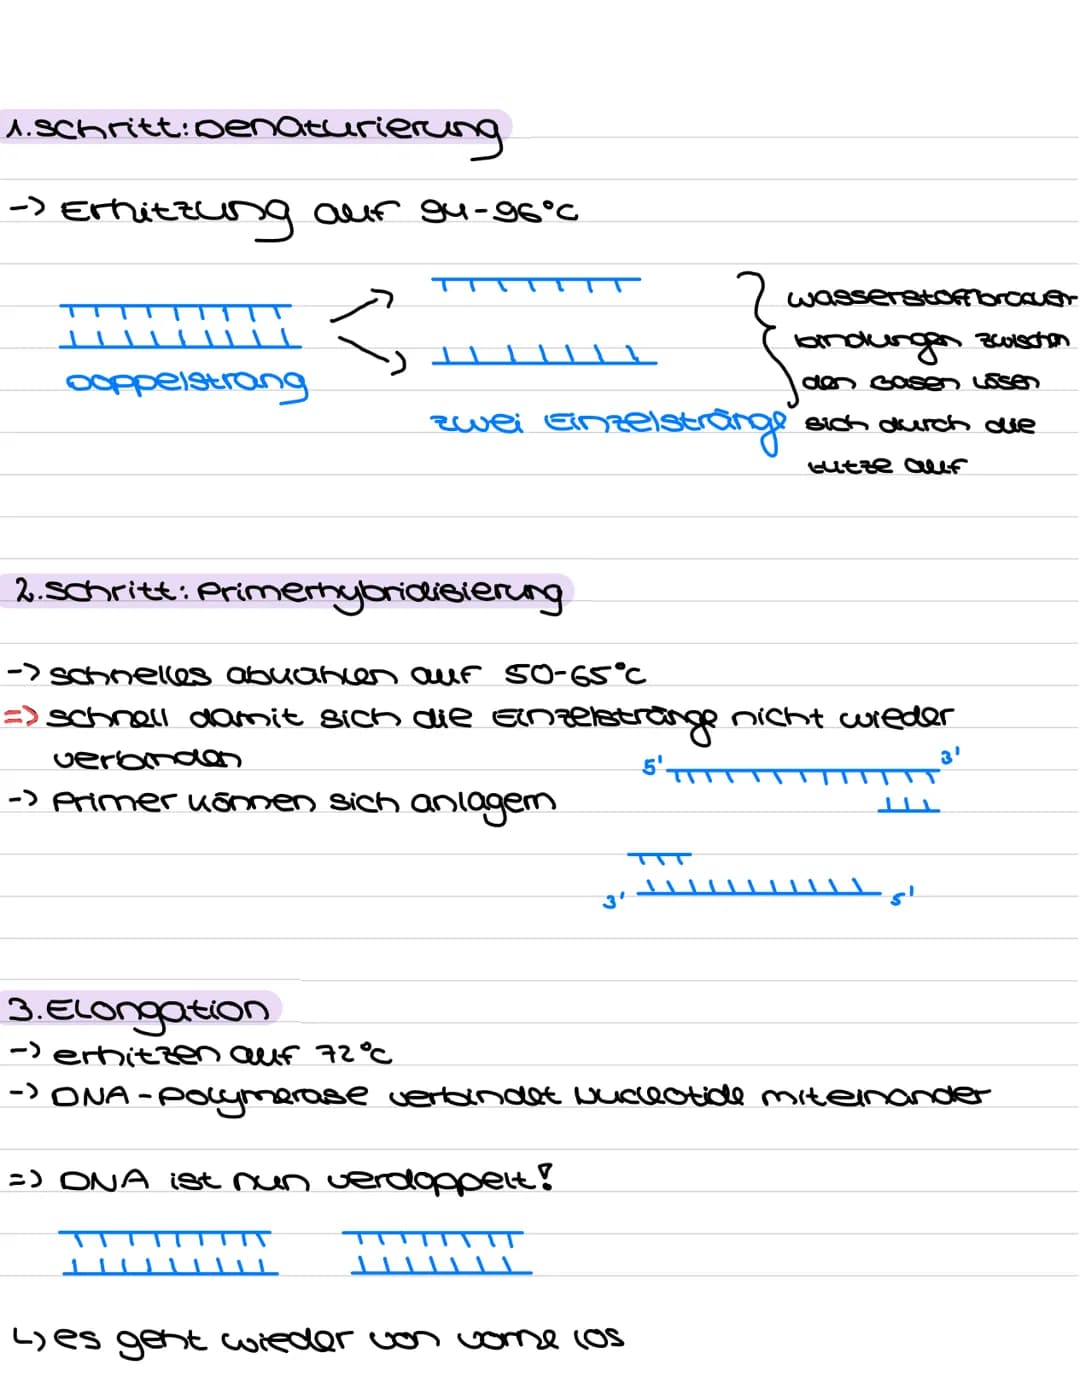 1. Schritt: Denaturierung
-> Erhitzung auf 94-96°C
Doppelstrang
zwei Einzelstränge
Wasserstoffbrücken
bindungen zwischen
den Basen lösen
sich durch die
Hitze auf
2. Schritt: Primerhybridisierung
-> schnelles abkühlen auf 50-65°C
=> schnell damit sich die Einzelstränge nicht wieder
verbinden
5' 3'
-> Primer können sich anlagern
3' 5'
3. Elongation
-> erhitzen auf 72°C
-> DNA-Polymerase verbindet Nucleotide miteinander
=> DNA ist nun verdoppelt!
↳ es geht wieder von vorne los